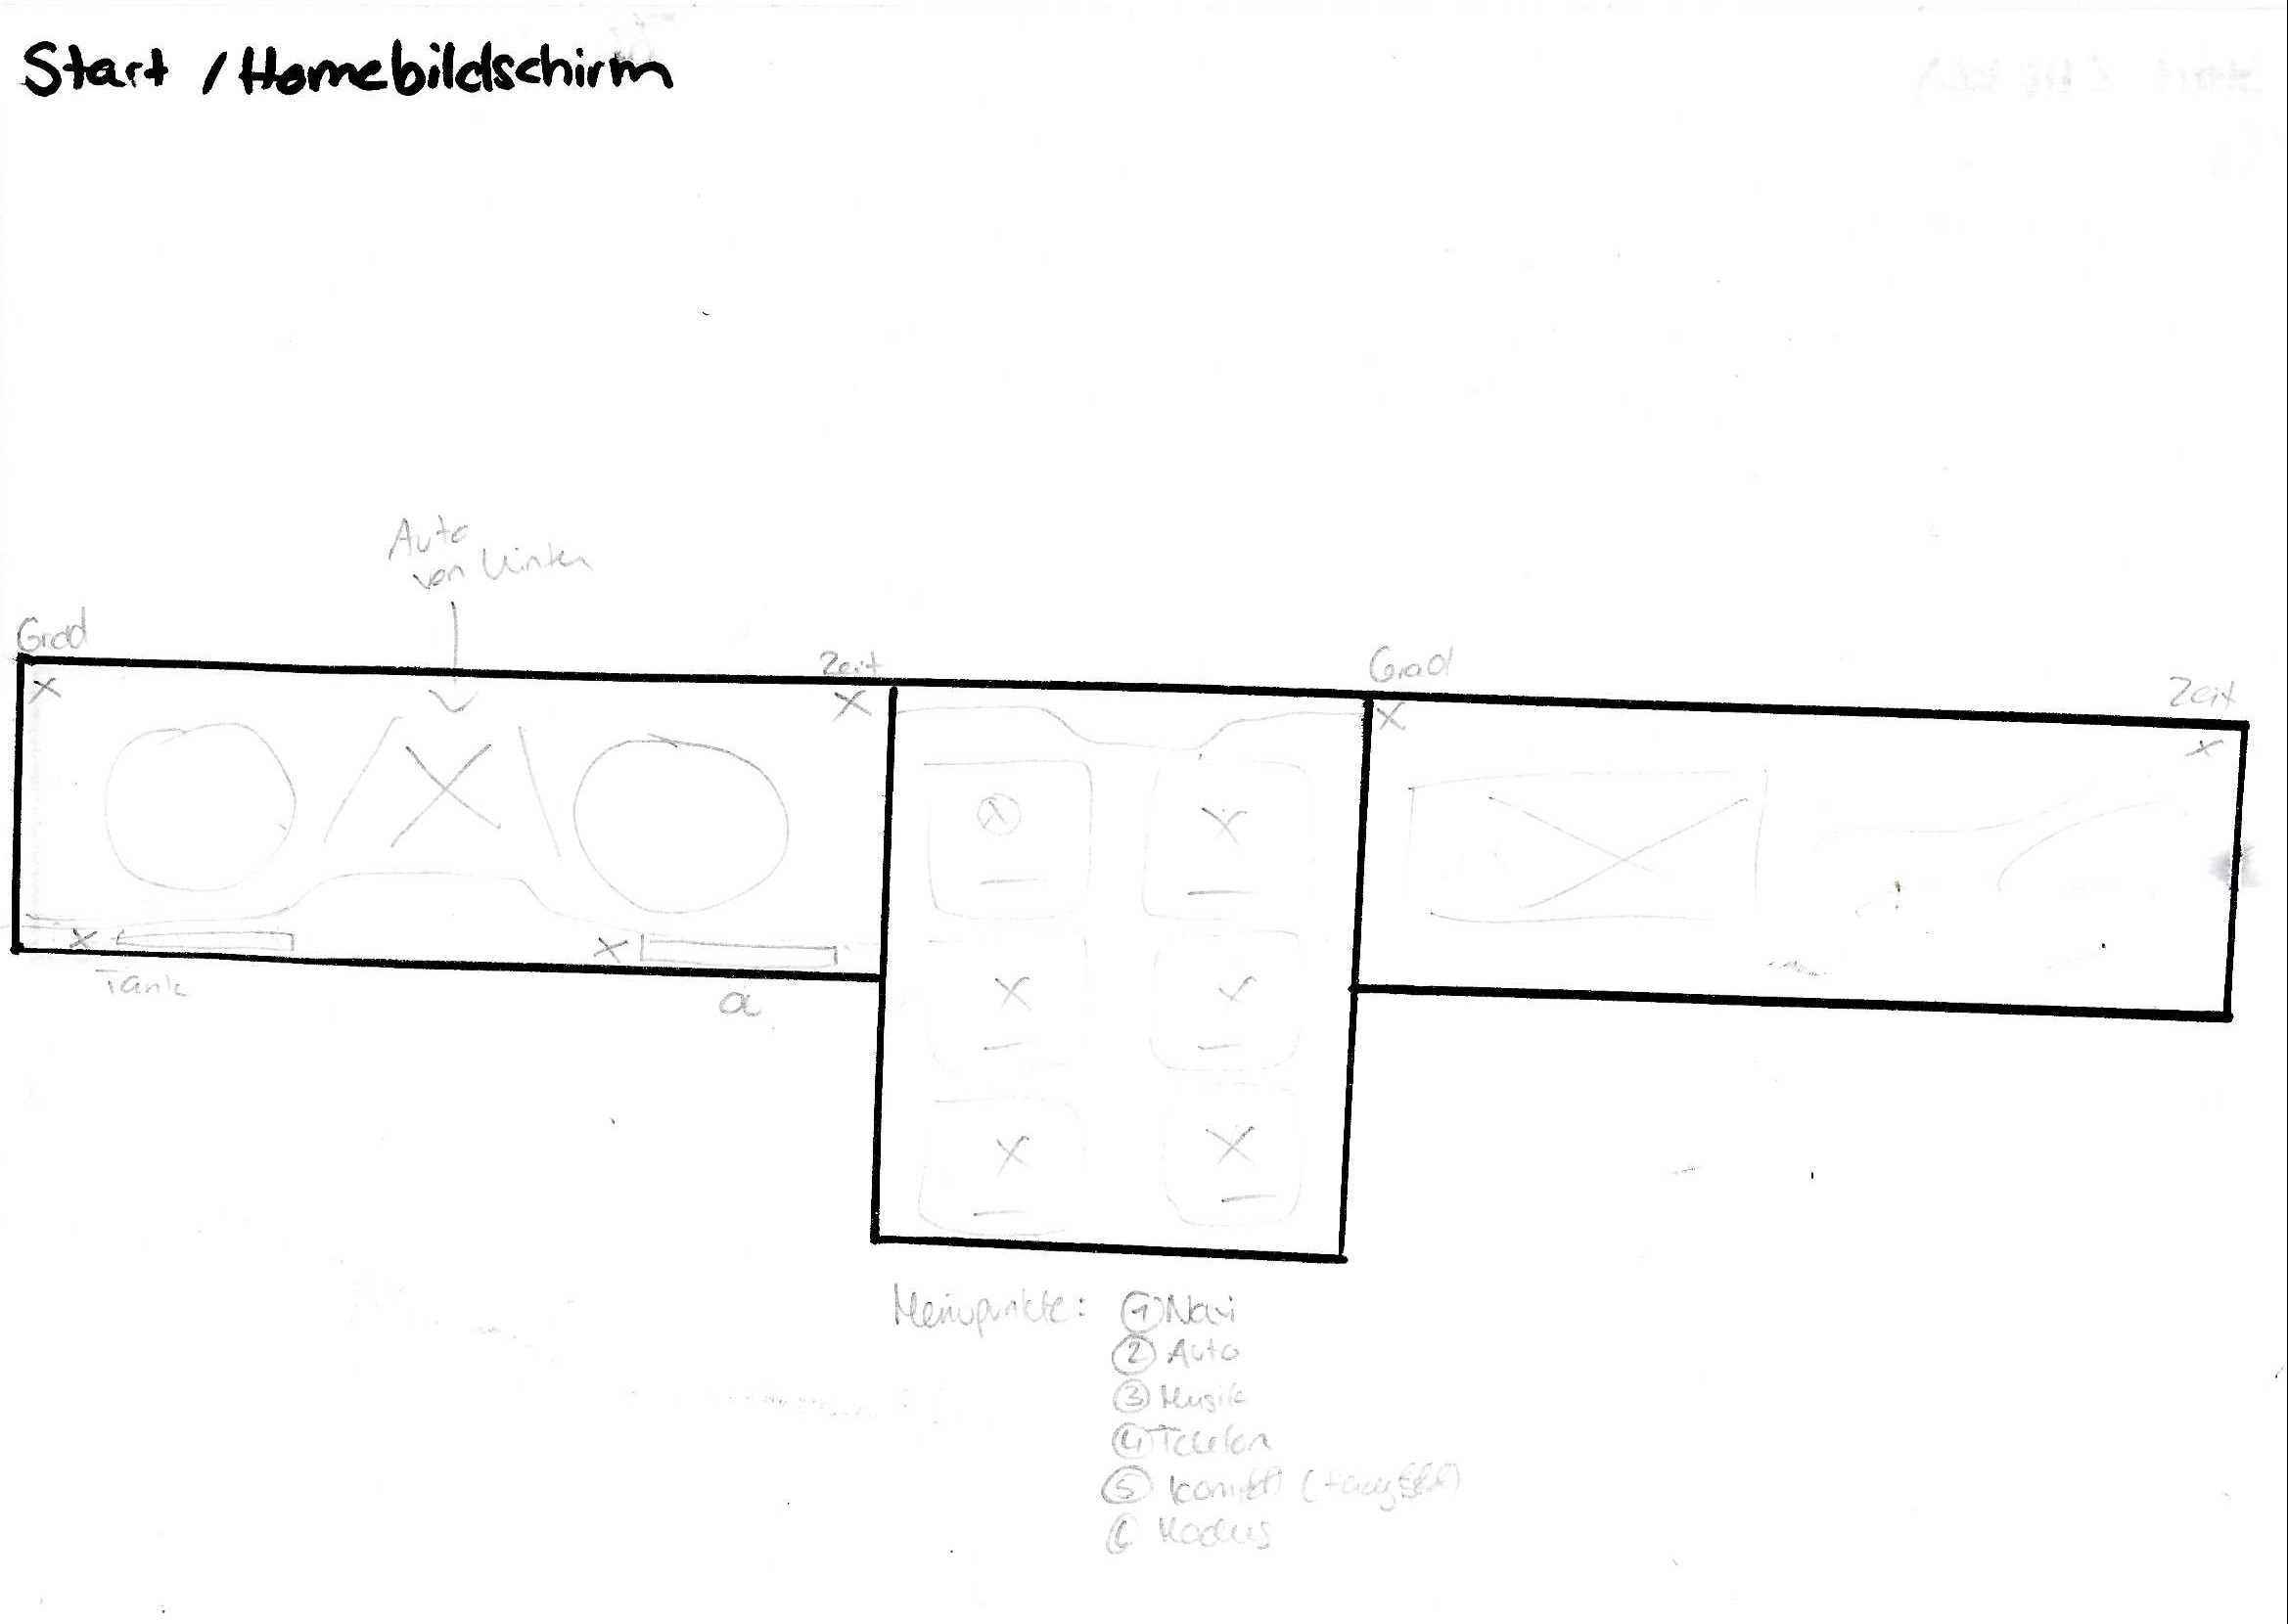 Start / Homebildschirm
Auto
von hinten
Grad
Zeit
Grad
Zeit
Tank
Menüpunkte: ① Navi
② Auto
③ Musik
④ Telefon
⑤
⑥ Modus